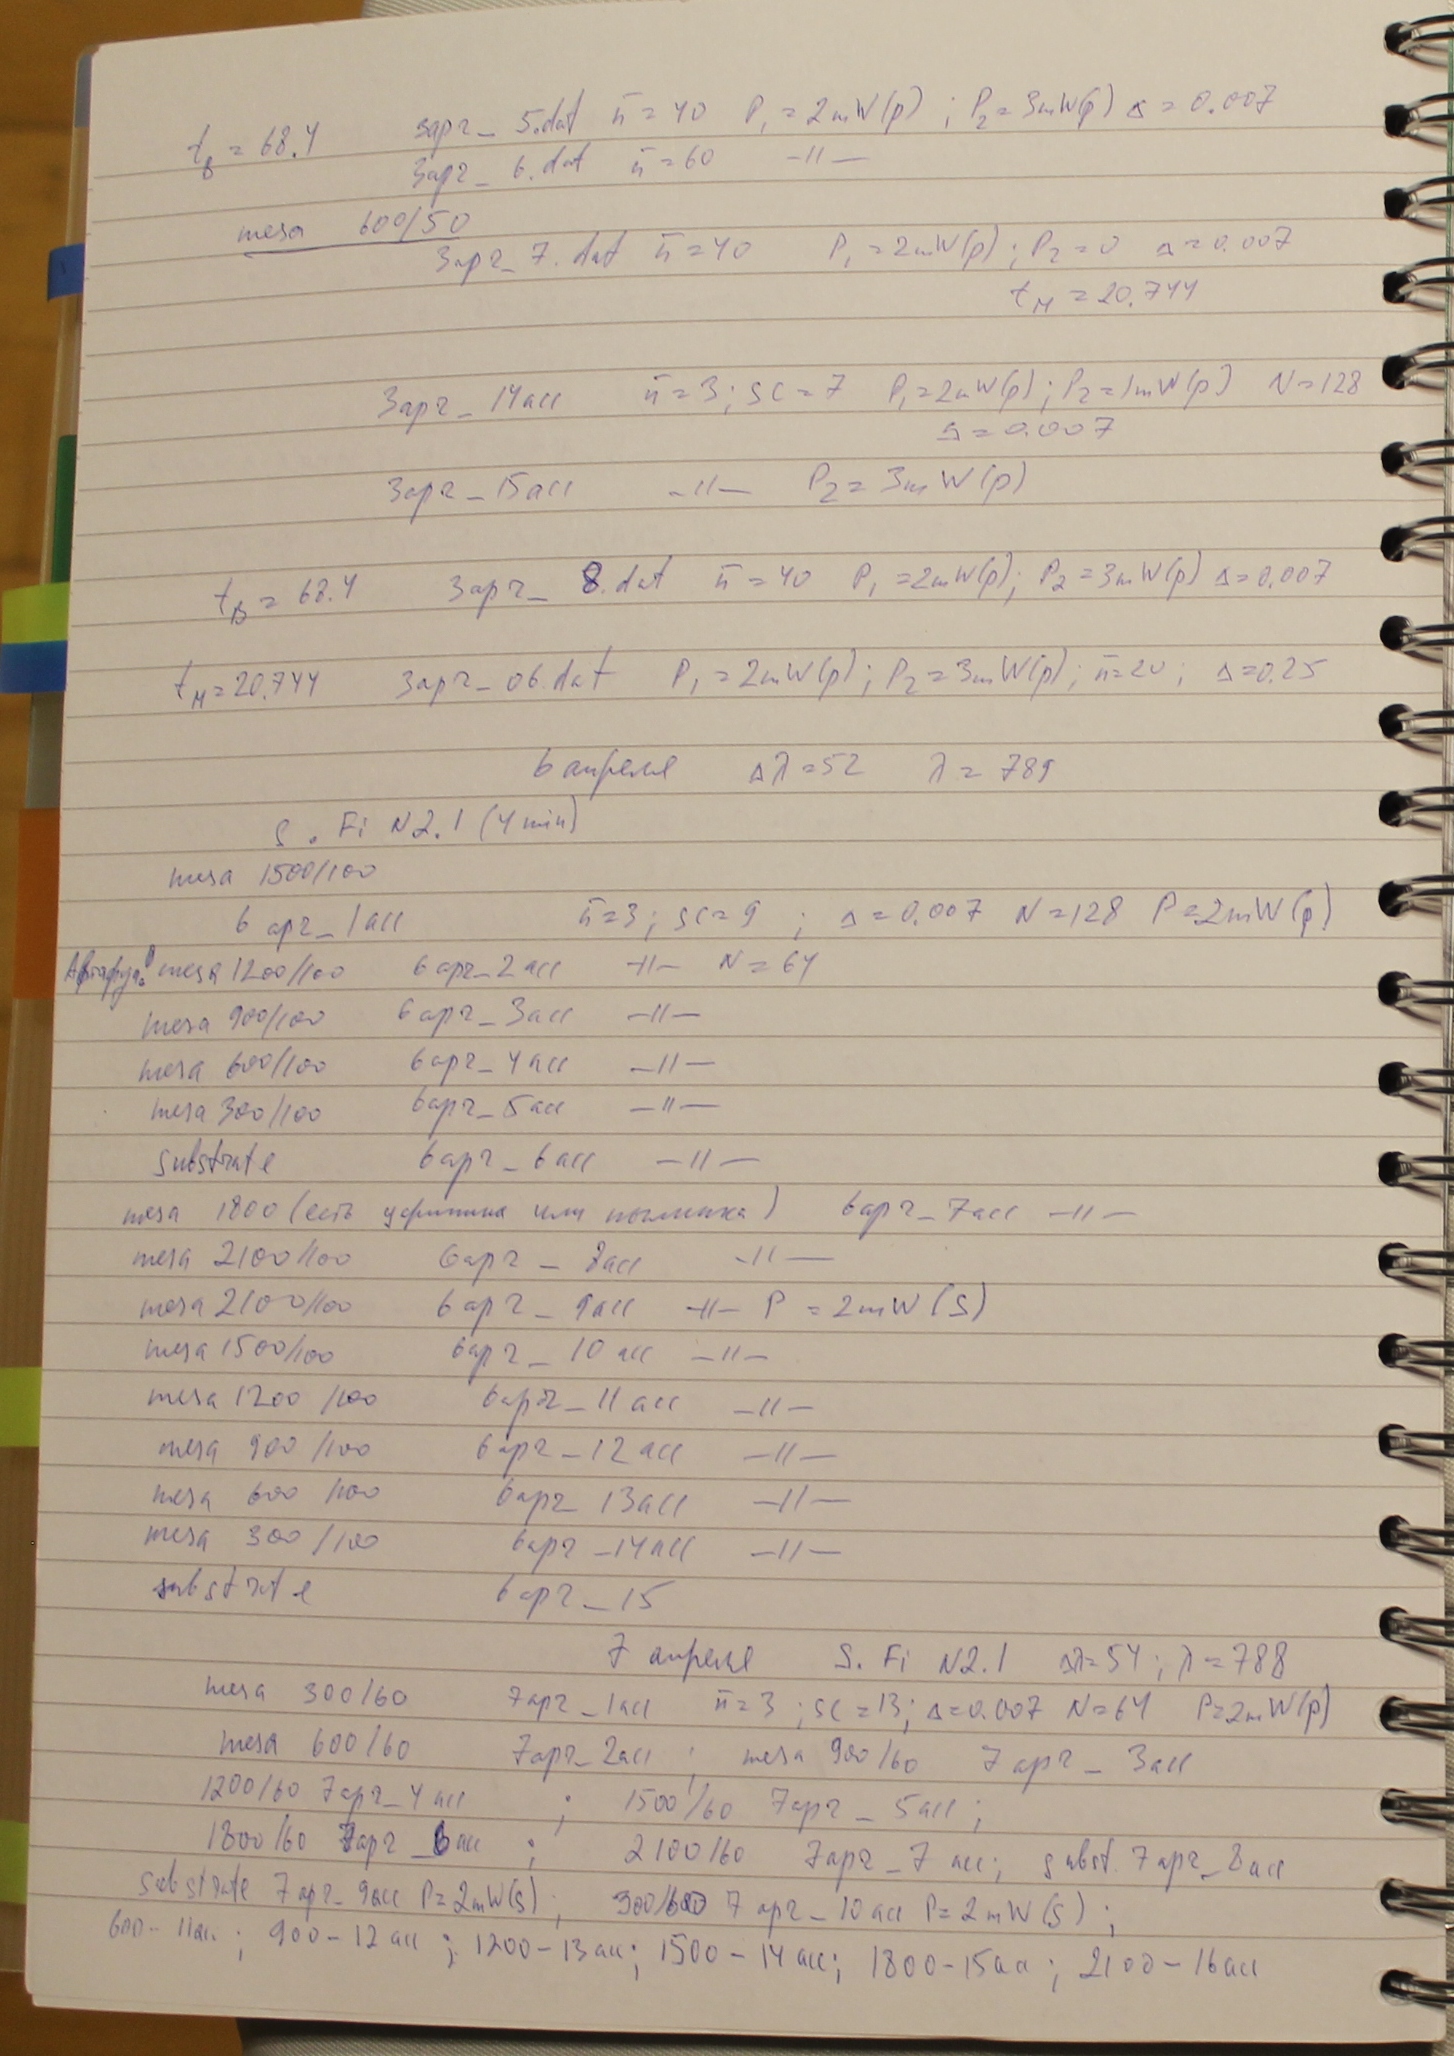 t_B = 68.4 3apr_5.dat n̄=40 P₁=2mW(p); P₂=3mW(p) Δ=0.007
3apr_6.dat n̄=60 –//–
mesa 600/50
3apr_7.dat n̄=40 P₁=2mW(p); P₂=0 Δ=0.007
t_M = 20.744
3apr_14acc n̄=3; sc=7 P₁=2mW(p); P₂=1mW(p) N=128
Δ=0.007
3apr_15acc –//– P₂=3mW(p)
t_B = 68.4 3apr_8.dat n̄=40 P₁=2mW(p); P₂=3mW(p) Δ=0.007
t_M=20.744 3apr_06.dat P₁=2mW(p); P₂=3mW(p); n̄=20; Δ=0.25
6 апреля Δλ=52 λ=789
S. Fi N2.1 (4min)
mesa 1500/100
6apr_1acc n̄=3; sc=9; Δ=0.007 N=128 P=2mW(p)
mesa 1200/100 6apr_2acc –//– N=64
mesa 900/100 6apr_3acc –//–
mesa 600/100 6apr_4acc –//–
mesa 300/100 6apr_5acc –//–
substrate 6apr_6acc –//–
mesa 1800 (есть царапина или пылинка) 6apr_7acc –//–
mesa 2100/100 6apr_8acc –//–
mesa 2100/100 6apr_9acc –//– P=2mW(S)
mesa 1500/100 6apr_10acc –//–
mesa 1200/100 6apr_11acc –//–
mesa 900/100 6apr_12acc –//–
mesa 600/100 6apr_13acc –//–
mesa 300/100 6apr_14acc –//–
substrate 6apr_15
7 апреля S. Fi N2.1 Δλ=54; λ=788
mesa 300/60 7apr_1acc n̄=3; sc=13; Δ=0.007 N=64 P=2mW(p)
mesa 600/60 7apr_2acc; mesa 900/60 7apr_3acc
1200/60 7apr_4acc; 1500/60 7apr_5acc;
1800/60 7apr_6acc; 2100/60 7apr_7acc; subst. 7apr_8acc
substrate 7apr_9acc P=2mW(S); 300/60 7apr_10acc P=2mW(S);
600–11acc; 900–12acc; 1200–13acc; 1500–14acc; 1800–15acc; 2100–16acc